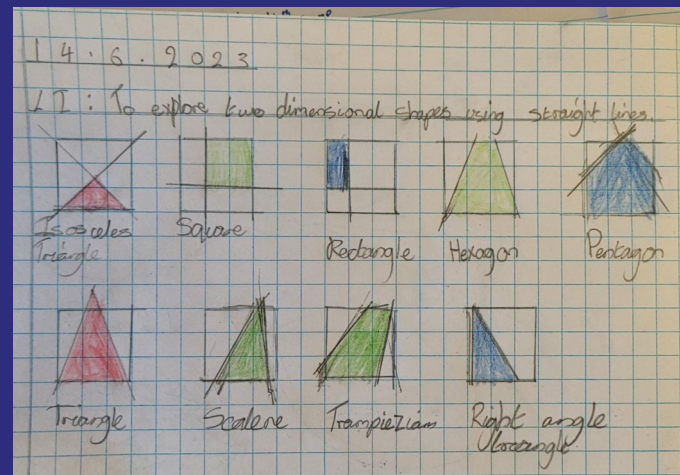 14.6.2023
LI: To explore two dimensional shapes using straight lines.
Isosceles
Triangle
Square
Rectangle
Hexagon
Pentagon
Triangle
Scalene
Trampieziam
Right angle
traangle